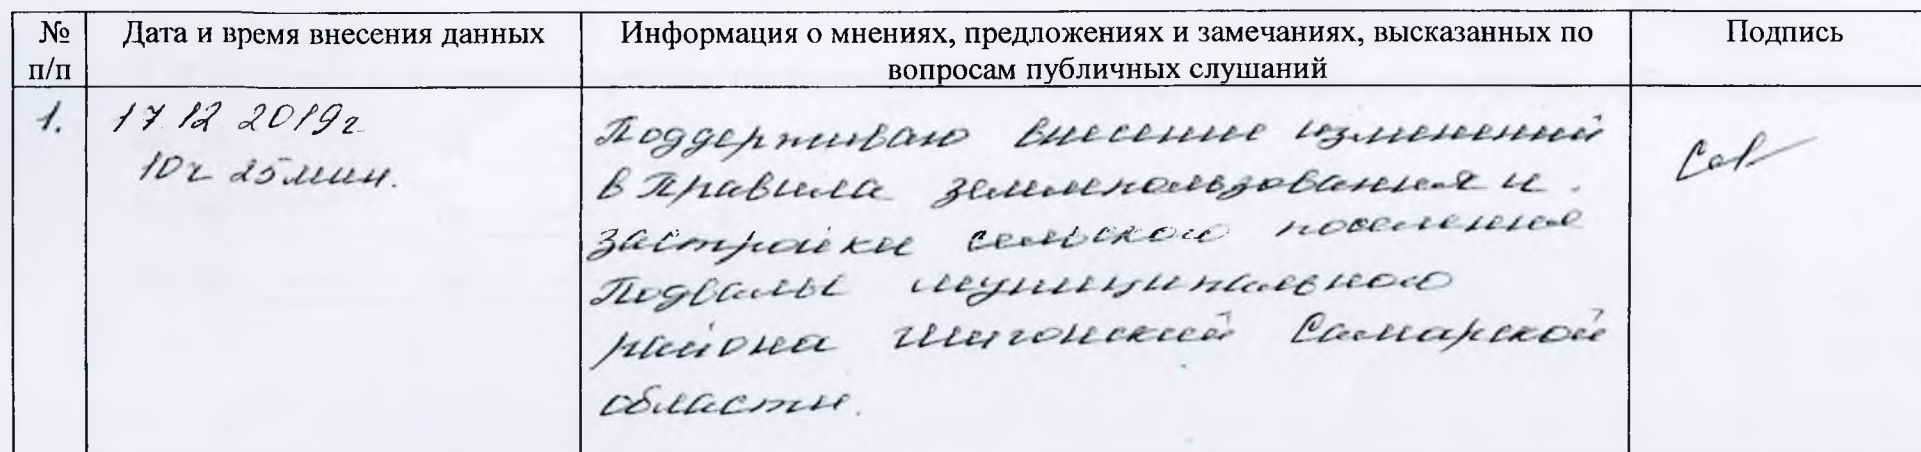 № п/п Дата и время внесения данных Информация о мнениях, предложениях и замечаниях, высказанных по вопросам публичных слушаний Подпись
1. 17 12 2019г
10ч 25мин.
Поддерживаю внесение изменений
в Правила землепользования и
застройки сельского поселения
Подвалы муниципального
района Шигонский Самарской
области.